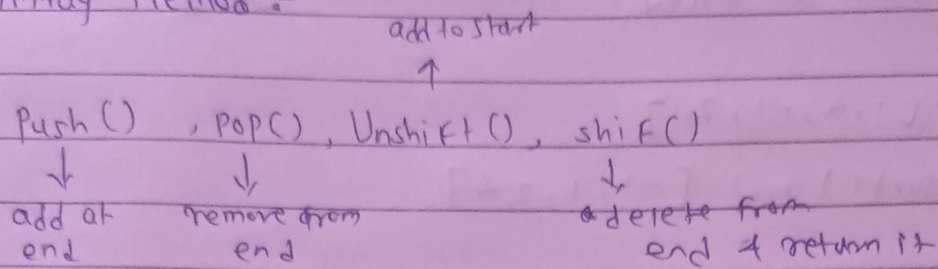 Array Method :
add to start
Push () , POP() , Unshift () , shif()
add at remove from delete from
end end end & return it